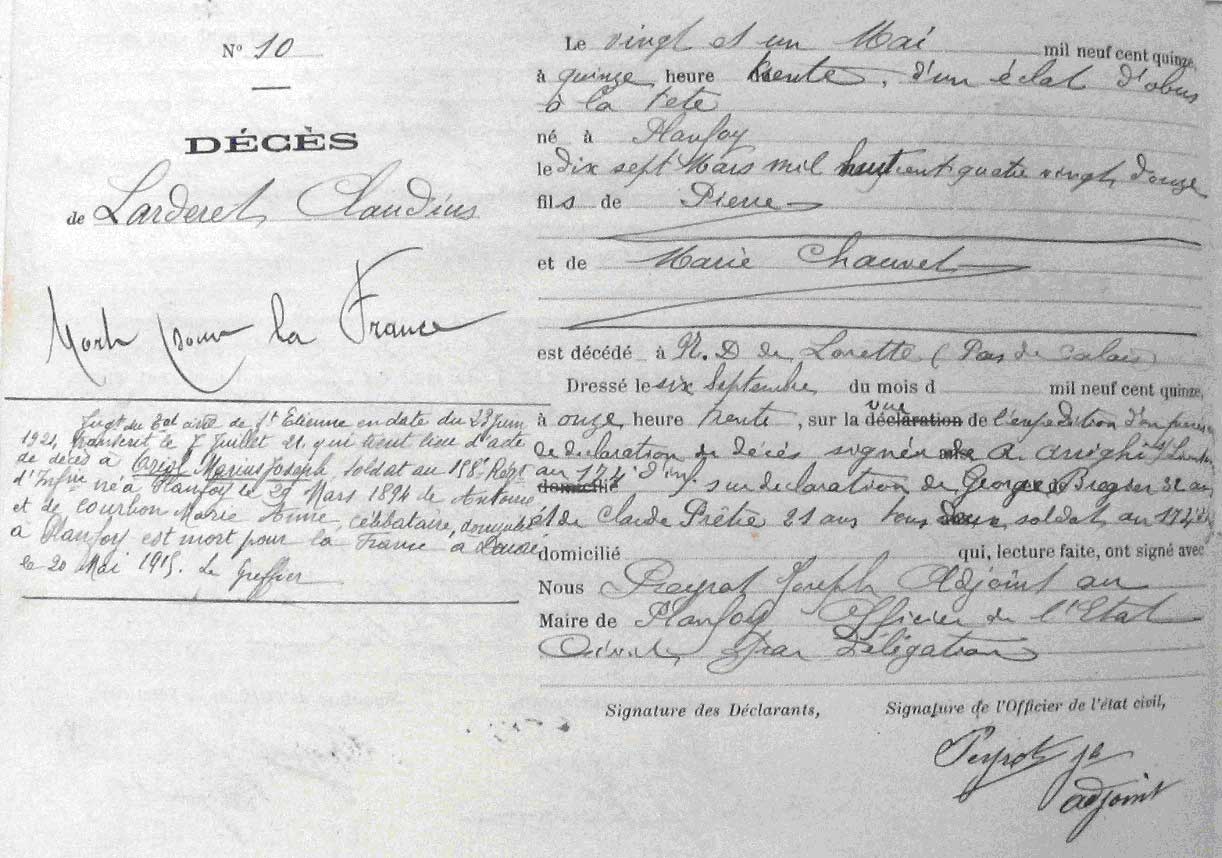 N° 10
DÉCÈS
de Larderet, Claudius
Mort pour la France
Jugt du Bal civil de St Etienne en date du 23 Juin
1921, transcrit le Juillet 21, qui tient lieu d'acte
de décès à Oriol Marius Joseph, soldat au 158e Régt
d'Infrie né à Planfoy le 29 Mars 1894 de Antoine
et de Courbon Marie Anne, célibataire, domicilié
à Planfoy est mort pour la France à Douai
le 20 Mai 1915. Le Greffier
Le vingt et un Mai mil neuf cent quinze,
à quinze heure trente, d'un éclat d'obus
à la tête
né à Planfoy
le dix sept Mars mil huit cent quatre vingt douze
fils de Pierre
et de Marie Chauvet
est décédé à N. D de Lorette (Pas de Calais)
Dressé le six Septembre du mois d mil neuf cent quinze,
à onze heure trente, sur la déclaration vue de l'expédition d'un
de déclaration de décès signée A. Arighi S/Lieutenant
domicilié au 174e d'inf. sur declaration de Georges 32 ans
et de Claude Prêtre 21 ans tous deux soldat au 174e
domicilié qui, lecture faite, ont signé avec
Nous Peyrot Joseph Adjoint au
Maire de Planfoy Officier de l'Etat
Civil, par Délégation
Signature des Déclarants, Signature de l'Officier de l'état civil,
Peyrot Jh
adjoint